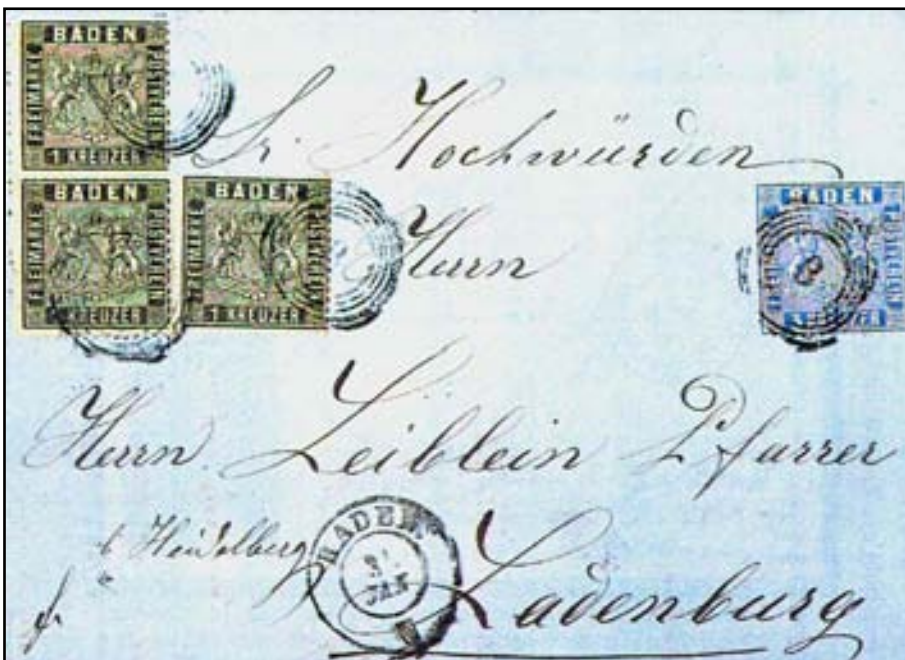 BADEN
FREIMARKE
POSTVEREIN
1 KREUZER
BADEN
FREIMARKE
POSTVEREIN
KREUZER
BADEN
FREIMARKE
POSTVEREIN
1 KREUZER
BADEN
KREUZER
Sr. Hochwürden
Herrn
Herrn Leiblein Pfarrer
b Heidelberg
Ladenburg
BADEN
31
JAN